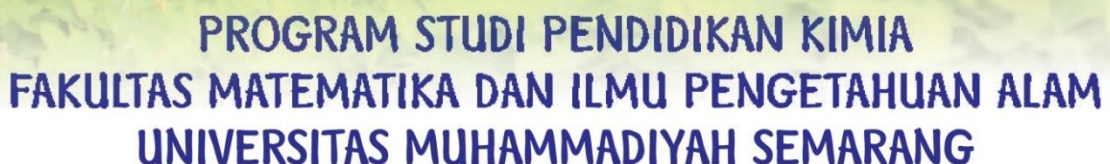 PROGRAM STUDI PENDIDIKAN KIMIA
FAKULTAS MATEMATIKA DAN ILMU PENGETAHUAN ALAM
UNIVERSITAS MUHAMMADIYAH SEMARANG